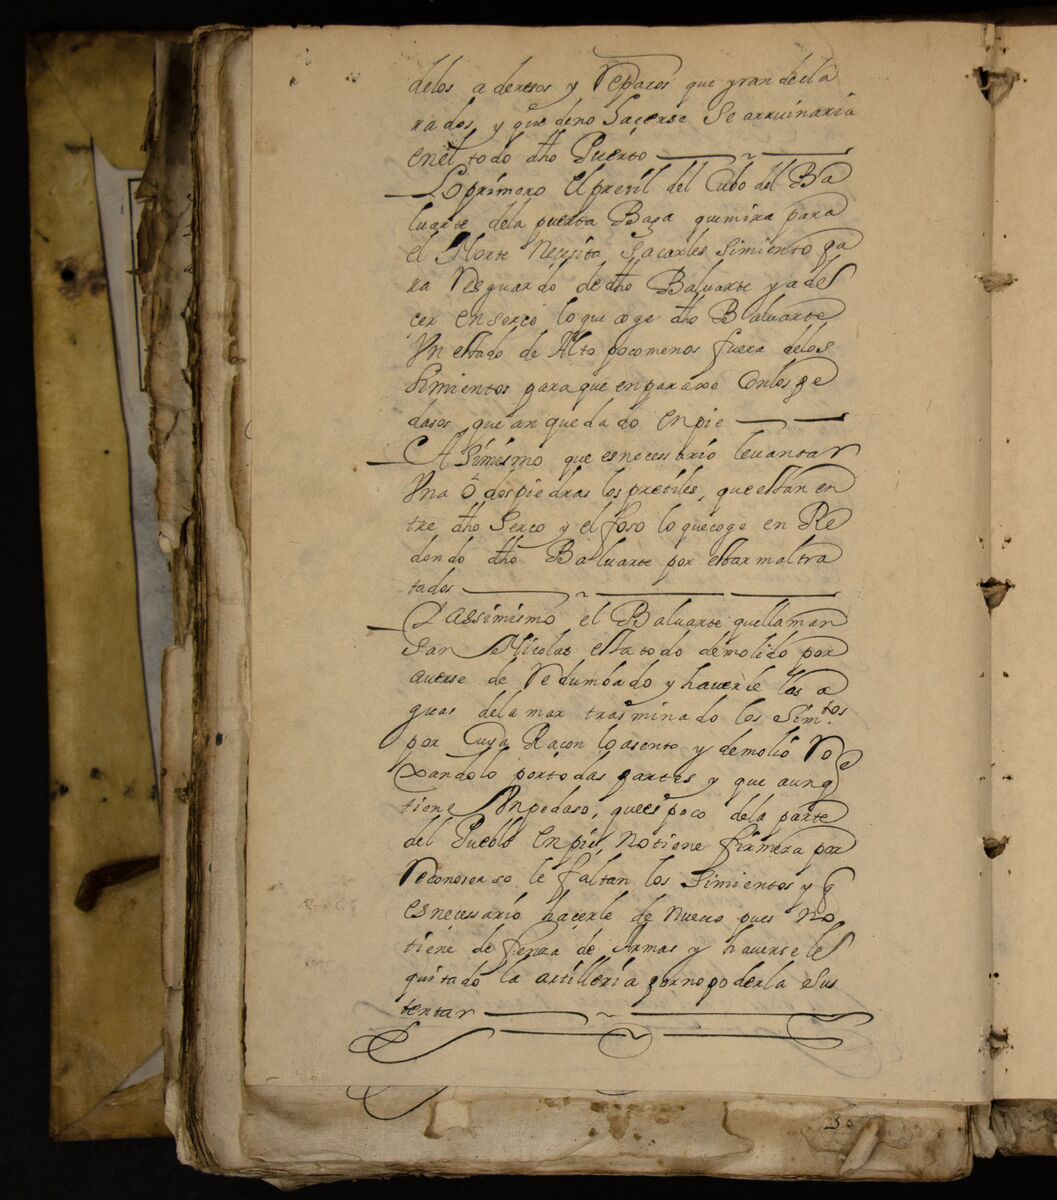 delos aderesos y Reparos que yran decla
rados, y que deno hacerse Se arruinaria
enel todo dho Puerto
Lo primero El pretil del Cubo del Ba
luarte dela puerta Baxa que mira para
el Norte Necesita sacarles simiento pa
ra Resguardo de dho Baluarte y a
cer en serco lo que coge dho Baluarte
Un estado de Alto poco menos fuera delos
Simientos para que enparexe Conlos pe
dasos que an quedado en pie
Asimismo que es necessario levantar
Una o dos piedras los pretiles, que estan en
tre dho Serco y el foso lo que coge en Re
dondo dho Baluarte por estar maltra
tados
Yassimismo el Baluarte que llaman
San Nicolas esta todo demolido por
averse de Redumbado y haverle las a
guas dela mar trasminado los Simtos
por Cuya Racon lo asento y demolio Ro
xandolo por todas partes y que aunq
tiene Un pedaso, que es poco dela parte
del Pueblo En pie, no tiene firmeza por
Reconoserse le faltan los Simientos y q
es necessario hacerle de Nuevo pues No
tiene defenza de Armas y haverseles
quitado la artilleria por no poderla Sus
tentar